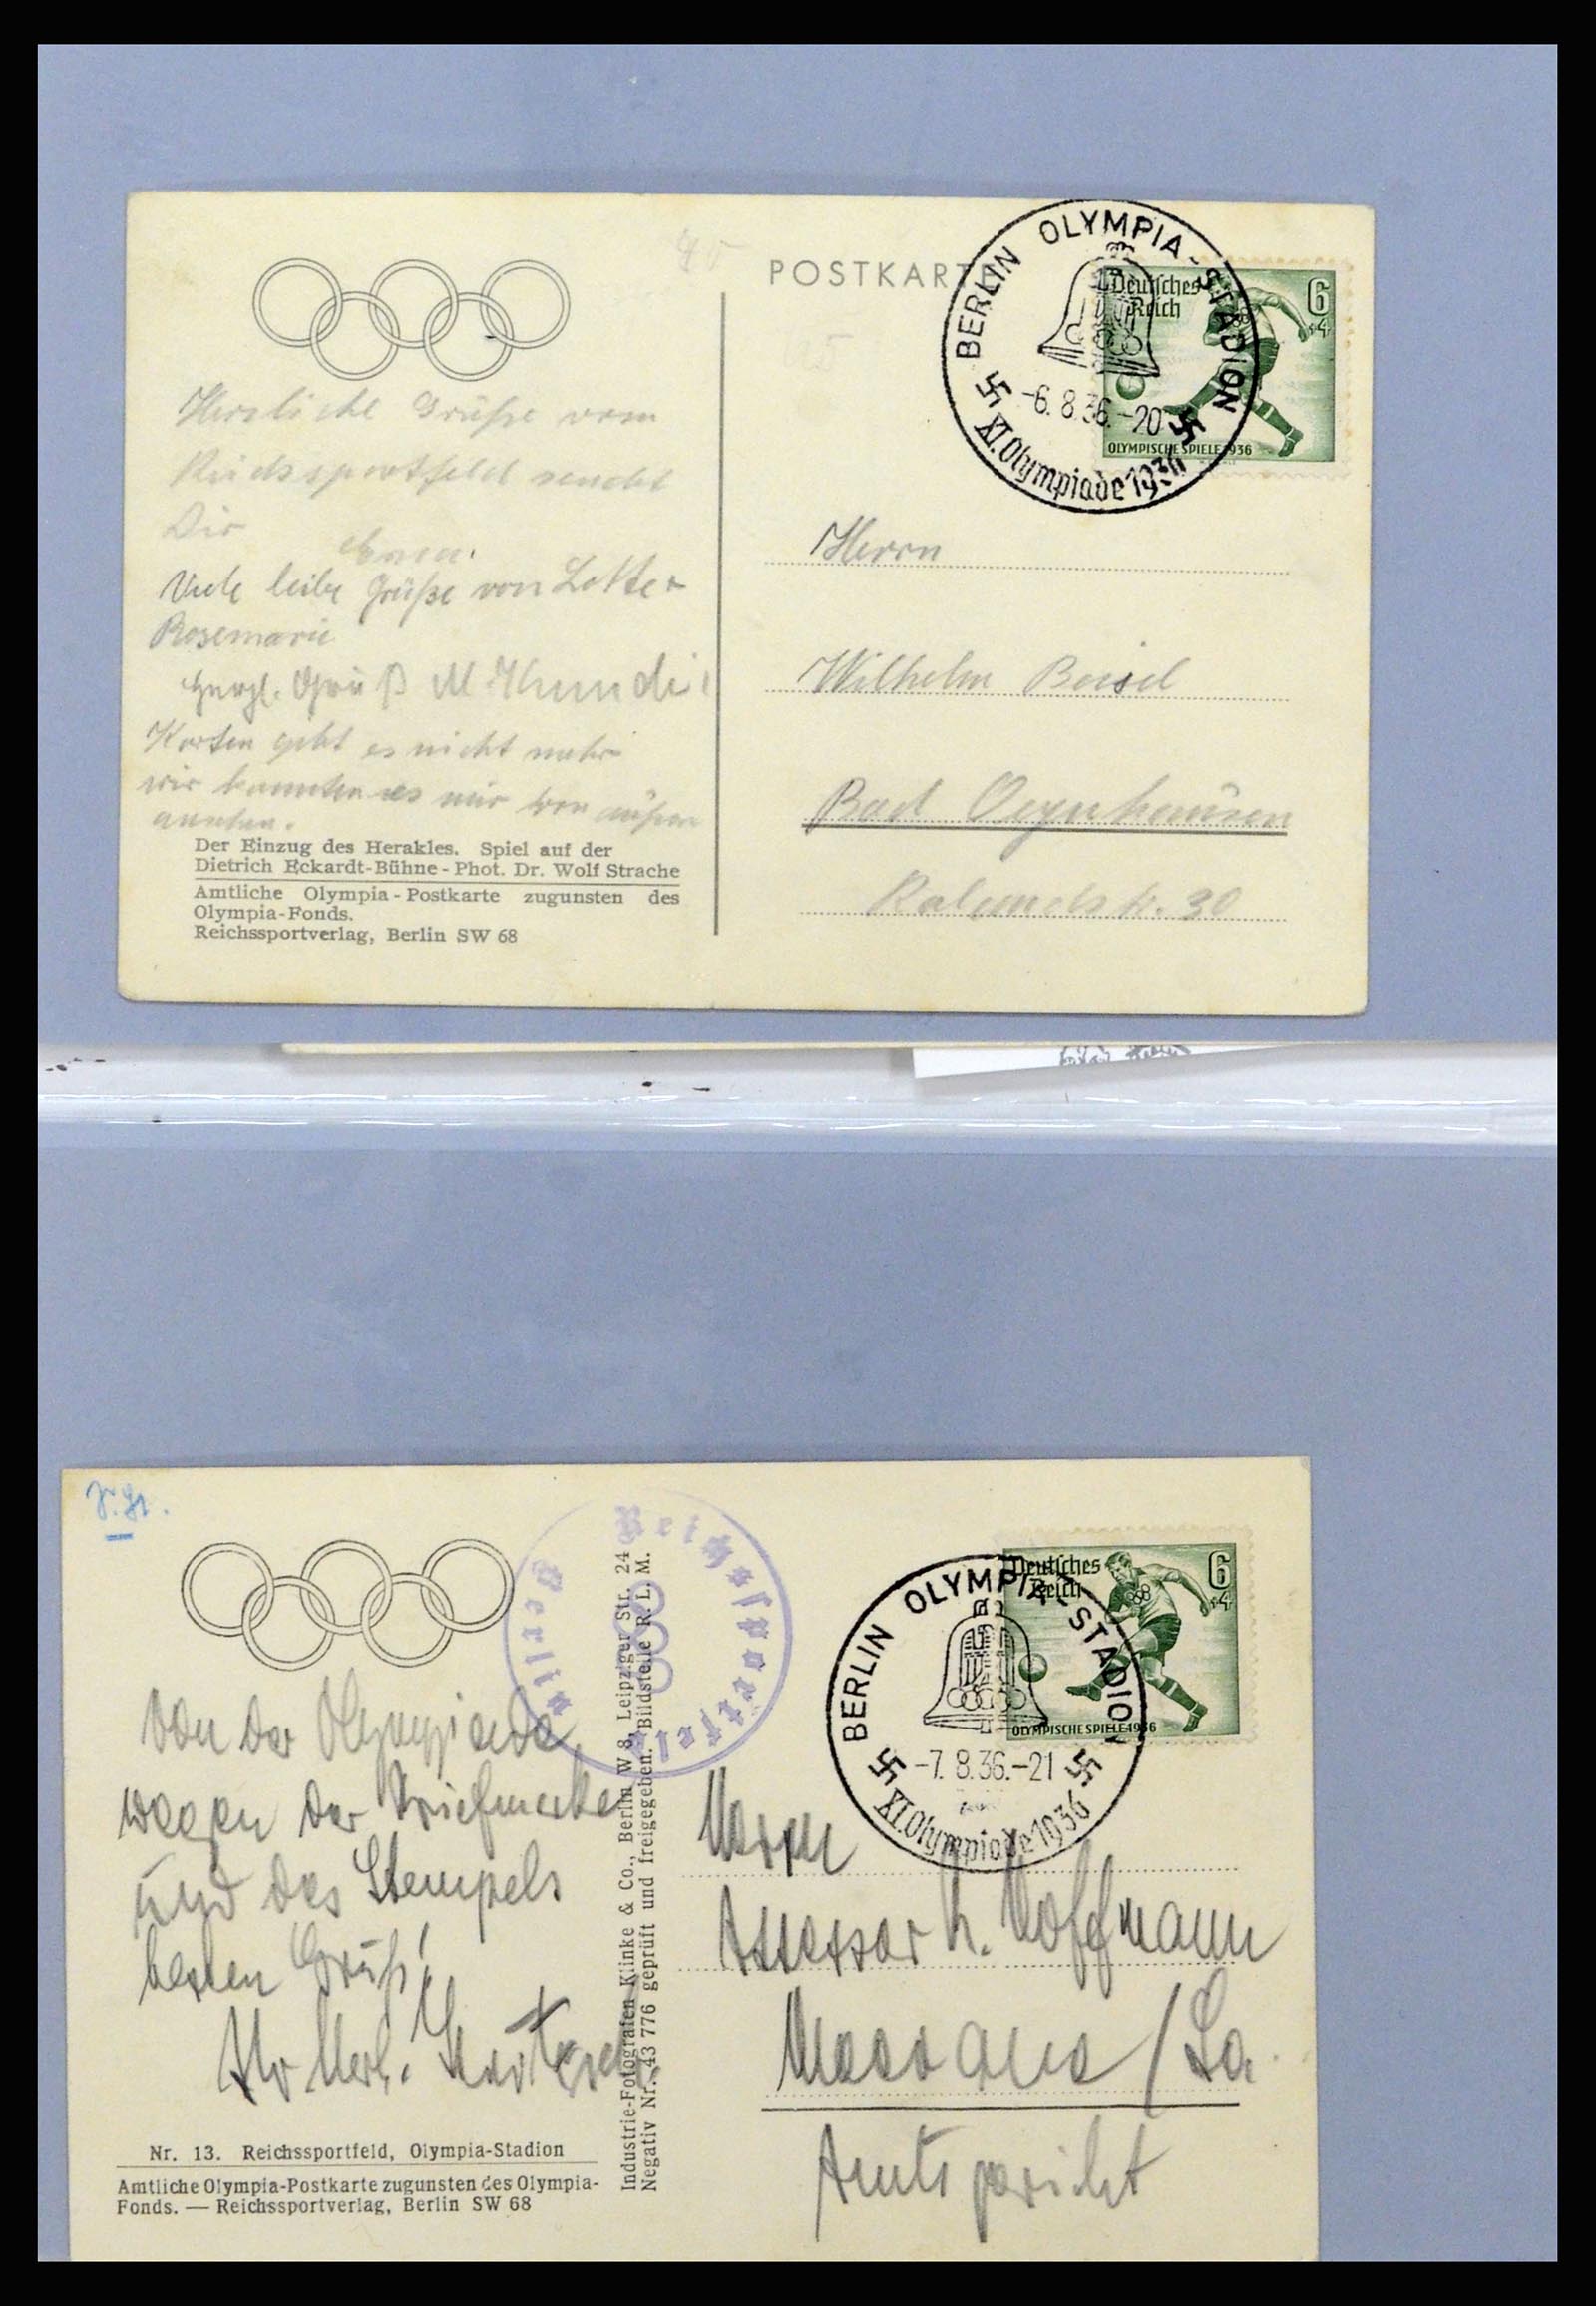 POSTKARTE
BERLIN OLYMPIA-STADION
-6. 8.36.-20
XI. Olympiade 1936
Deutsches
Reich
6
+4
OLYMPISCHE SPIELE 1936
Herzliche Grüße vom
Reichssportfeld sendet
Dir
Viele liebe Grüße von Lotte +
Rosemarie
Gruß M.
Karten gibt es nicht mehr
wir konnten es nur von außen
ansehen.
Der Einzug des Herakles. Spiel auf der
Dietrich Eckardt-Bühne - Phot. Dr. Wolf Strache
Amtliche Olympia - Postkarte zugunsten des
Olympia-Fonds.
Reichssportverlag, Berlin SW 68
Herrn
Wilhelm Beisel
Bad Oeynhausen
30
Reichssportfeld
Berlin
BERLIN OLYMPIA-STADION
-7. 8.36.-21
XI. Olympiade 1936
Deutsches
Reich
6
+4
OLYMPISCHE SPIELE 1936
Von der Olympiade
wegen der Briefmarke
und des Stempels
besten Gruß!
Nr. 13. Reichssportfeld, Olympia-Stadion
Amtliche Olympia-Postkarte zugunsten des Olympia-
Fonds. — Reichssportverlag, Berlin SW 68
Industrie-Fotografen Klinke & Co., Berlin W 8, Leipziger Str. 24
Negativ Nr. 43 776 geprüft und freigegeben. Bildstelle R. L. M.
Herrn
Assessor H. Hoffmann
/Sa.
Amtsgericht